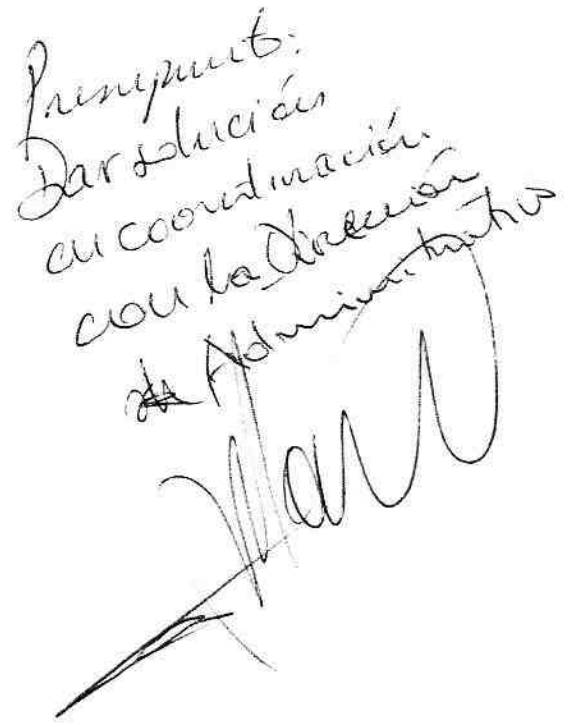 Presupuesto:
Dar solución
en coordinación
con la Dirección
Administrativo